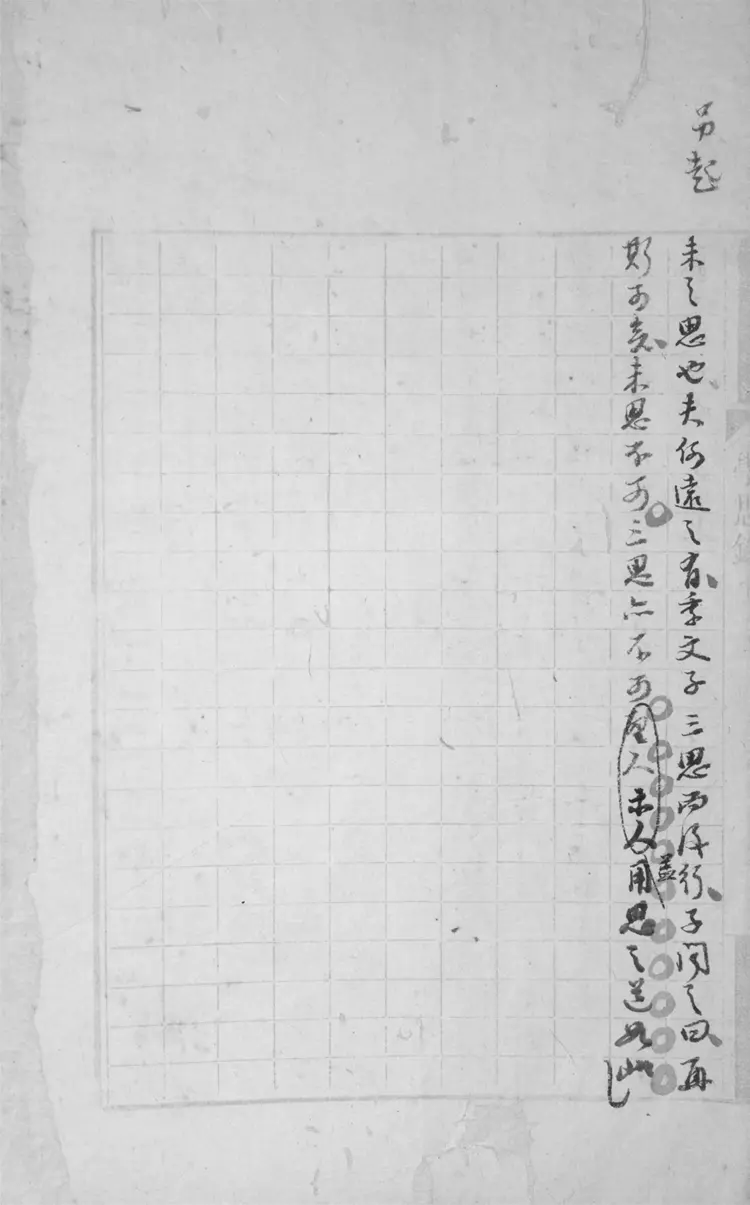 另起
未之思也夫何遠之有季文子三思而后行子聞之曰再
斯可矣未思不可三思亦不可聖人示人用思之道如此
蓋